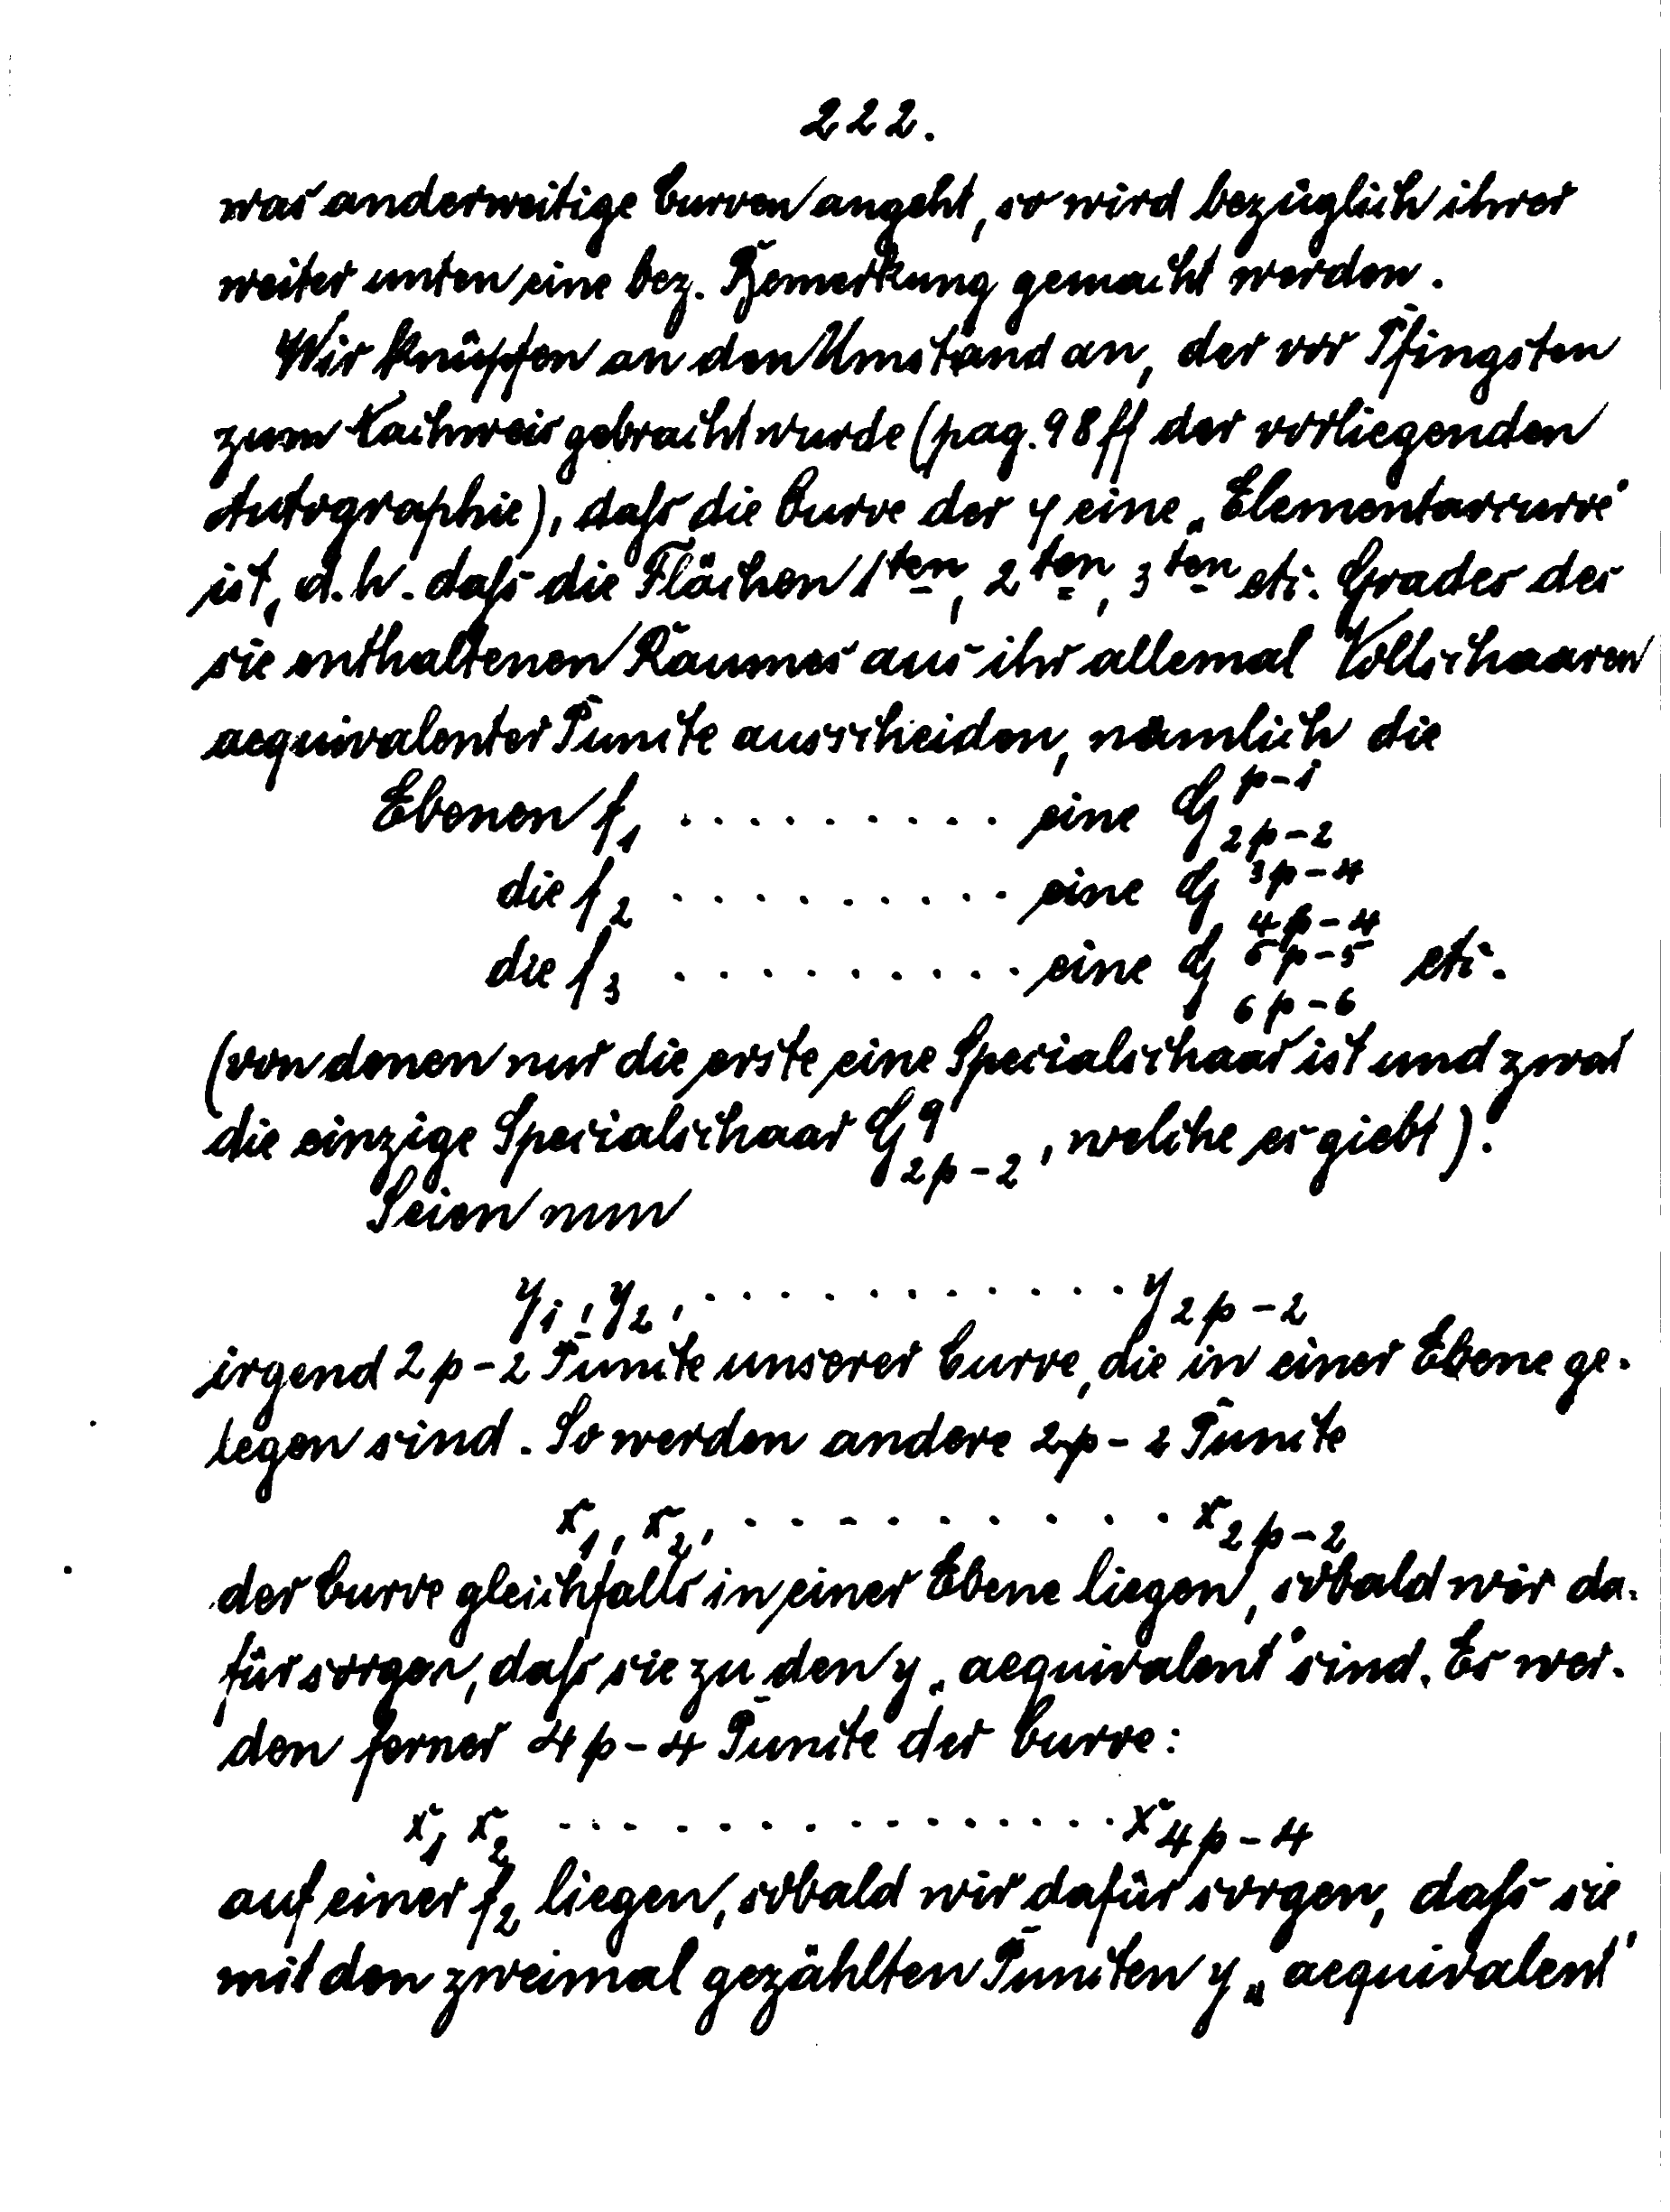 222.
was anderweitige Curven angeht, so wird bezüglich ihrer
weiter unten eine bez. Bemerkung gemacht werden.
Wir knüpfen an den Umstand an, der vor Pfingsten
zum Nachweis gebracht wurde (pag. 98 ff der vorliegenden
Autographie), daß die Curve der φ eine „Elementarcurve"
ist, d.h. daß die Flächen 1ten, 2ten, 3ten etc. Grades des
sie enthaltenen Raumes aus ihr allemal Vollschaaren
aequivalenter Puncte ausscheiden, nämlich die
Ebenen f₁ . . . . . . . . . eine G^{p-1}_{2p-2}
die f₂ . . . . . . . . . eine G^{3p-4}_{4p-4}
die f₃ . . . . . . . . . eine G^{5p-5}_{6p-6} etc.
(von denen nur die erste eine Specialschaar ist und zwar
die einzige Specialschaar G^{q}_{2p-2}, welche es giebt).
Seien nun
y₁, y₂, . . . . . . . . . . . y_{2p-2}
irgend 2p-2 Puncte unserer Curve, die in einer Ebene ge-
legen sind. So werden andere 2p-2 Puncte
x₁, x₂, . . . . . . . . . . . x_{2p-2}
der Curve gleichfalls in einer Ebene liegen, sobald wir da-
für sorgen, daß sie zu den y „aequivalent" sind. Es wer-
den ferner 4p-4 Puncte der Curve:
x₁ x₂ . . . . . . . . . . . . . . x_{4p-4}
auf einer f₂ liegen, sobald wir dafür sorgen, daß sie
mit den zweimal gezählten Puncten y „aequivalent"